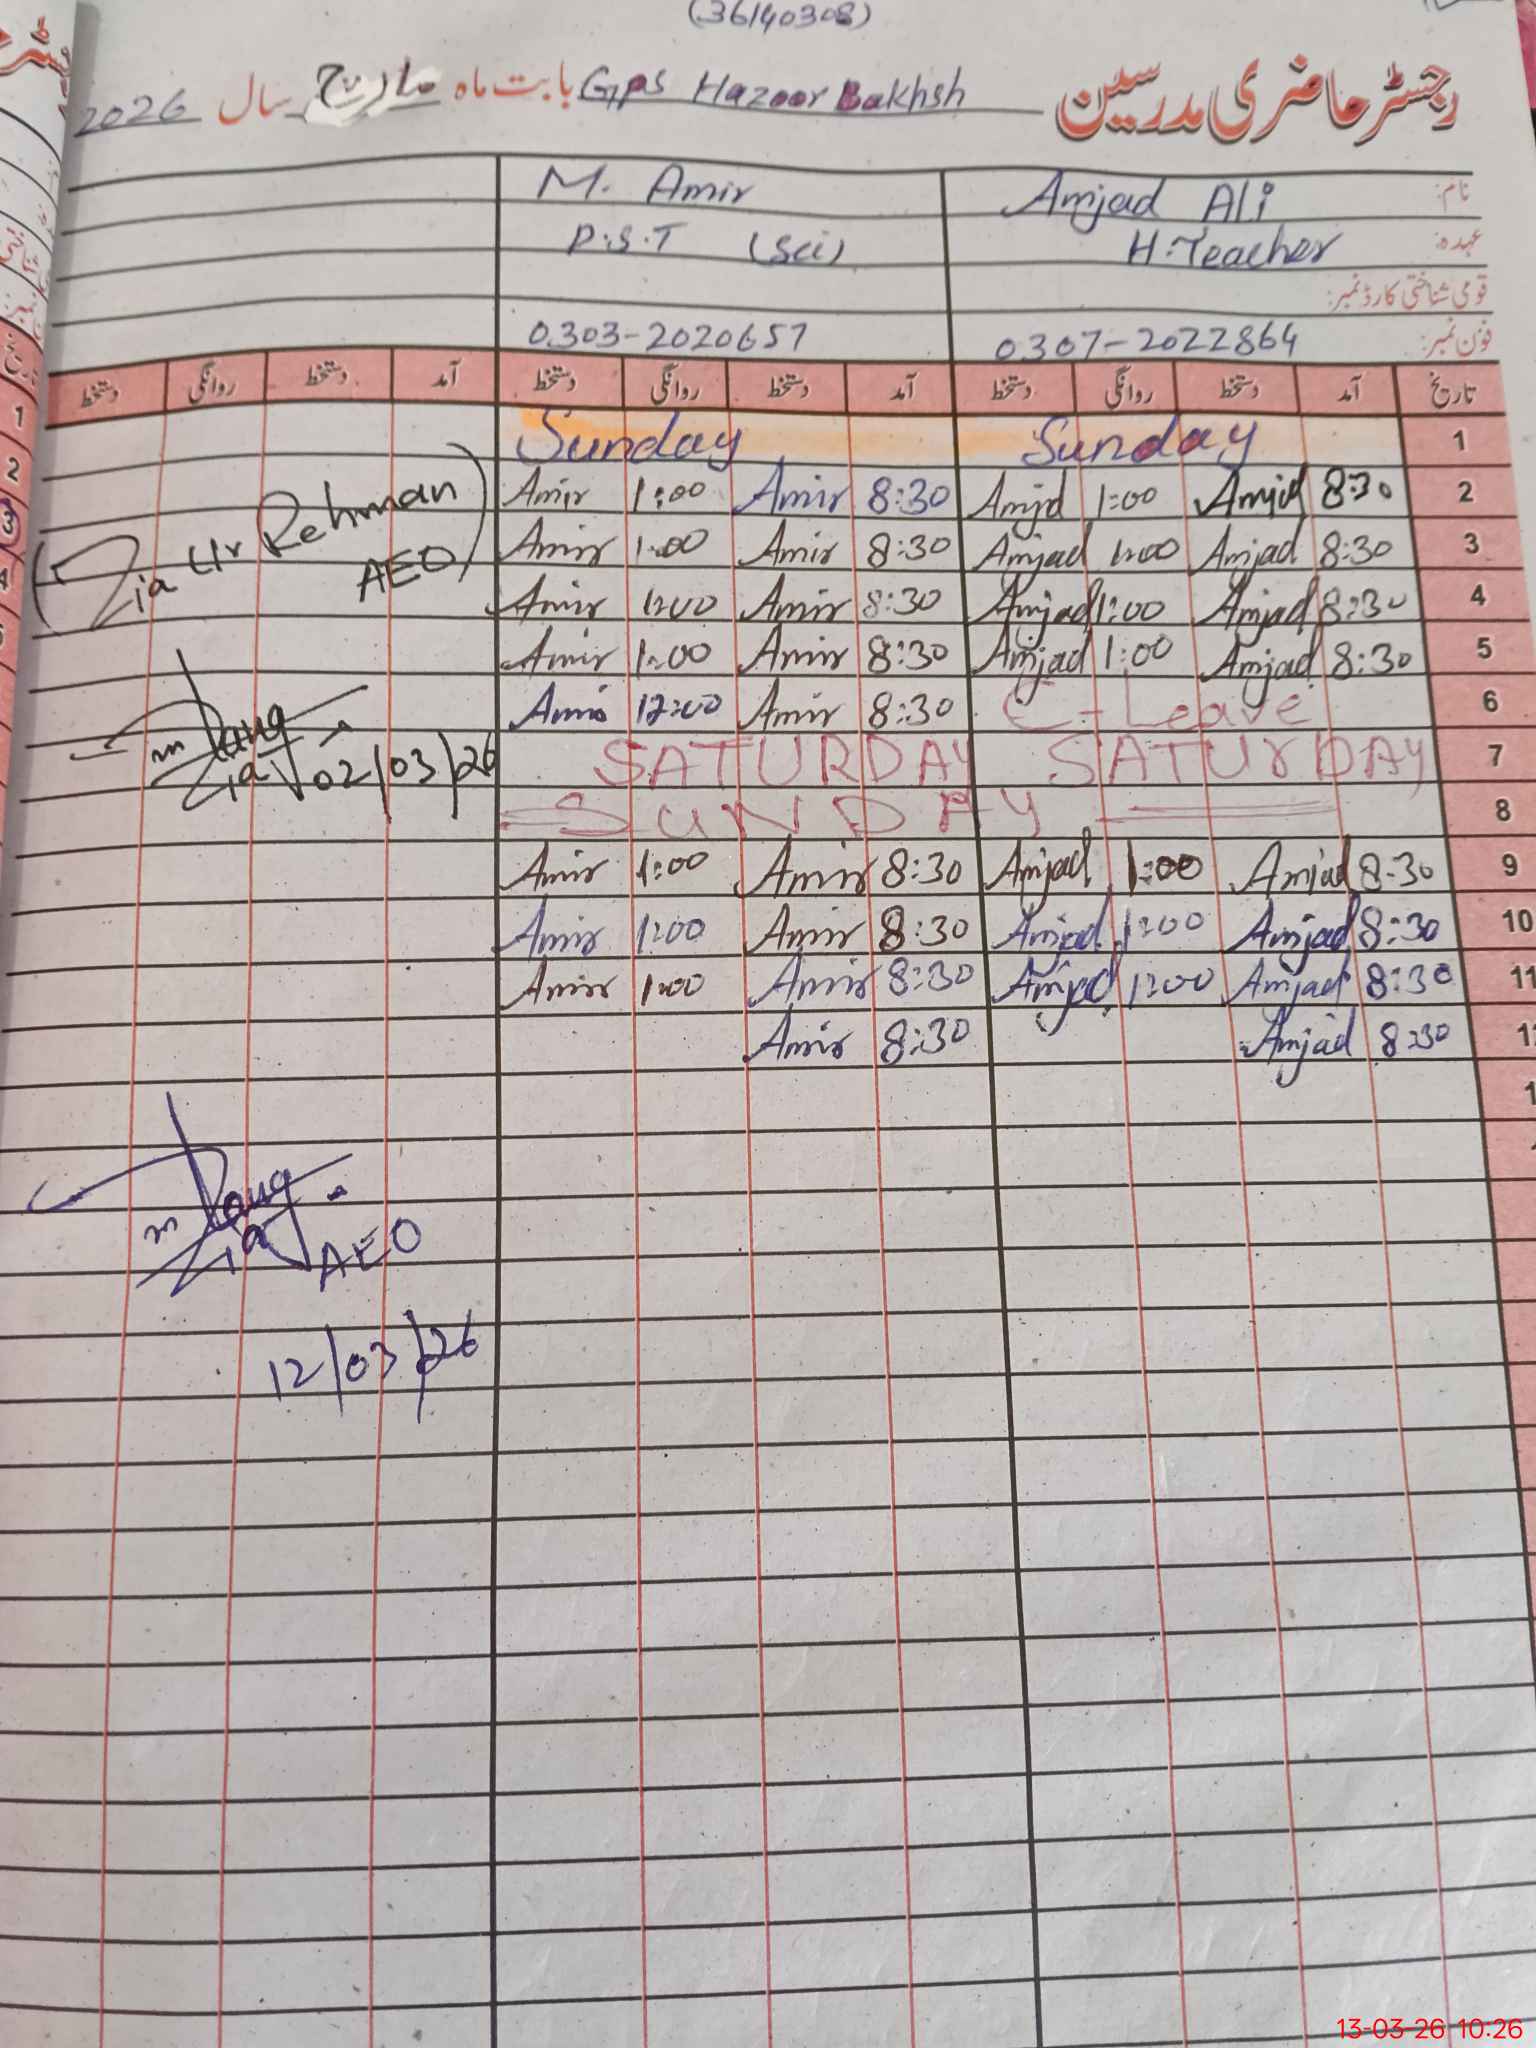 (36140308)
رجسٹر حاضری مدرسین GPS Hazoor Bakhsh بابت ماہ مارچ سال 2026
نام: Amjad Ali M. Amir
عہدہ: H.Teacher P.S.T (Sci)
قومی شناختی کارڈ نمبر:
فون نمبر: 0307-2022864 0303-2020657
تاریخ آمد دستخط روانگی دستخط آمد دستخط روانگی دستخط آمد دستخط روانگی دستخط
1 Sunday Sunday
2 8:30 Amjd 1:00 Amjd 8:30 Amir 1:00 Amir
3 8:30 Amjad 1:00 Amjad 8:30 Amir 1:00 Amir
4 8:30 Amjad 1:00 Amjad 8:30 Amir 1:00 Amir
5 8:30 Amjad 1:00 Amjad 8:30 Amir 1:00 Amir
6 E-Leave 8:30 Amir 12:00 Amir
7 SATURDAY SATURDAY
8 SUNDAY
9 8:30 Amjad 1:00 Amjad 8:30 Amir 1:00 Amir
10 8:30 Amjad 1:00 Amjad 8:30 Amir 1:00 Amir
11 8:30 Amjad 1:00 Amjad 8:30 Amir 1:00 Amir
8:30 Amjad 8:30 Amir
(Zia Ur Rehman
AEO)
Zia
02/03/26
Zia
AEO
12/03/26
1
2
3
4
13-03-26 10:26